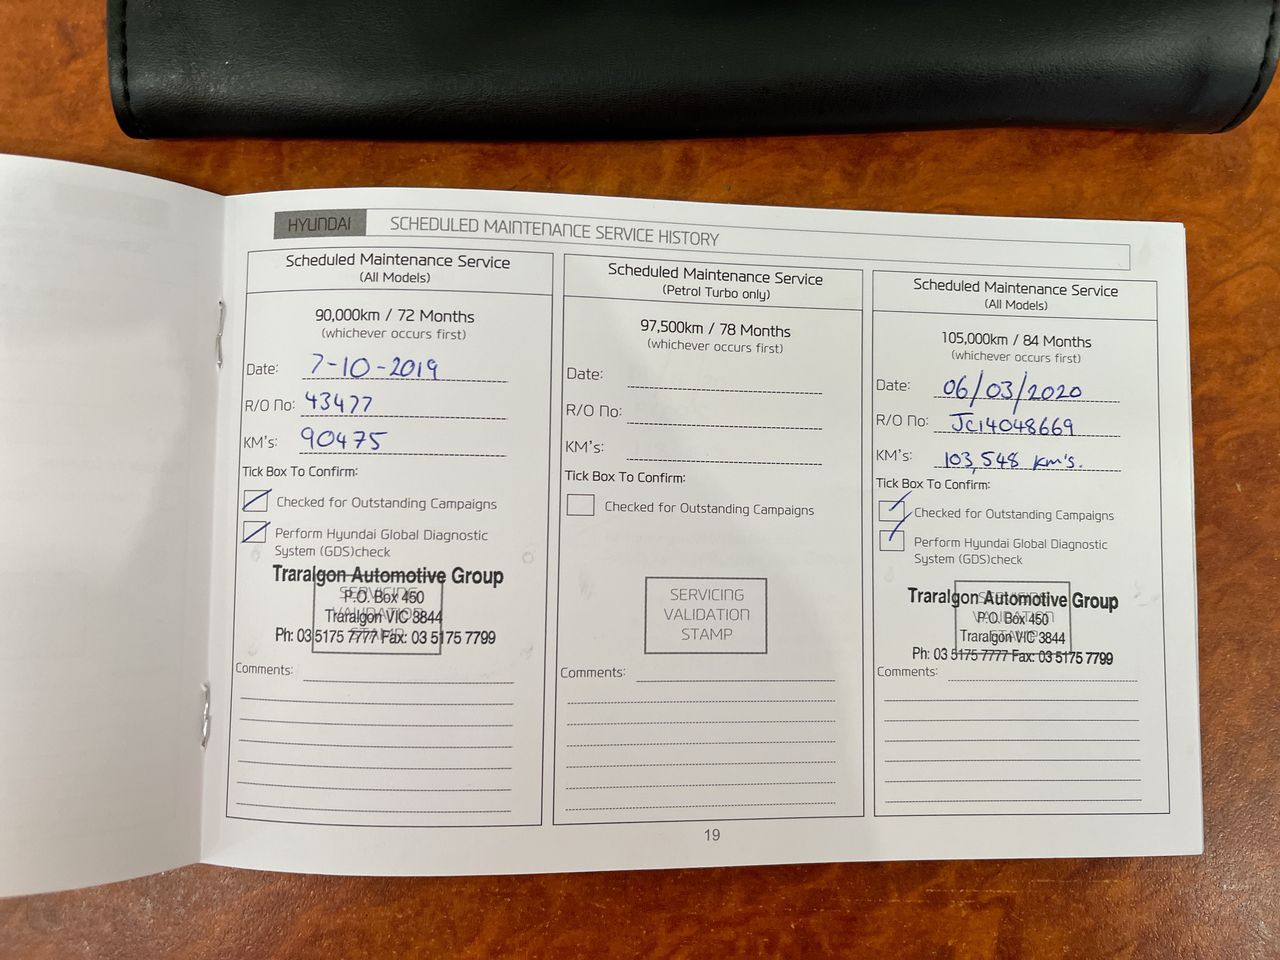 HYUNDAI SCHEDULED MAINTENANCE SERVICE HISTORY
Scheduled Maintenance Service
(All Models)
90,000km / 72 Months
(whichever occurs first)
Date: 7-10-2019
R/O No: 43477
KM's: 90475
Tick Box To Confirm:
Checked for Outstanding Campaigns
Perform Hyundai Global Diagnostic
System (GDS)check
SERVICING
VALIDATION
STAMP
Traralgon Automotive Group
P.O. Box 450
Traralgon VIC 3844
Ph: 03 5175 7777 Fax: 03 5175 7799
Comments:
Scheduled Maintenance Service
(Petrol Turbo only)
97,500km / 78 Months
(whichever occurs first)
Date:
R/O No:
KM's:
Tick Box To Confirm:
Checked for Outstanding Campaigns
SERVICING
VALIDATION
STAMP
Comments:
Scheduled Maintenance Service
(All Models)
105,000km / 84 Months
(whichever occurs first)
Date: 06/03/2020
R/O No: JC14048669
KM's: 103,548 km's.
Tick Box To Confirm:
Checked for Outstanding Campaigns
Perform Hyundai Global Diagnostic
System (GDS)check
SERVICING
VALIDATION
STAMP
Traralgon Automotive Group
P.O. Box 450
Traralgon VIC 3844
Ph: 03 5175 7777 Fax: 03 5175 7799
Comments:
19